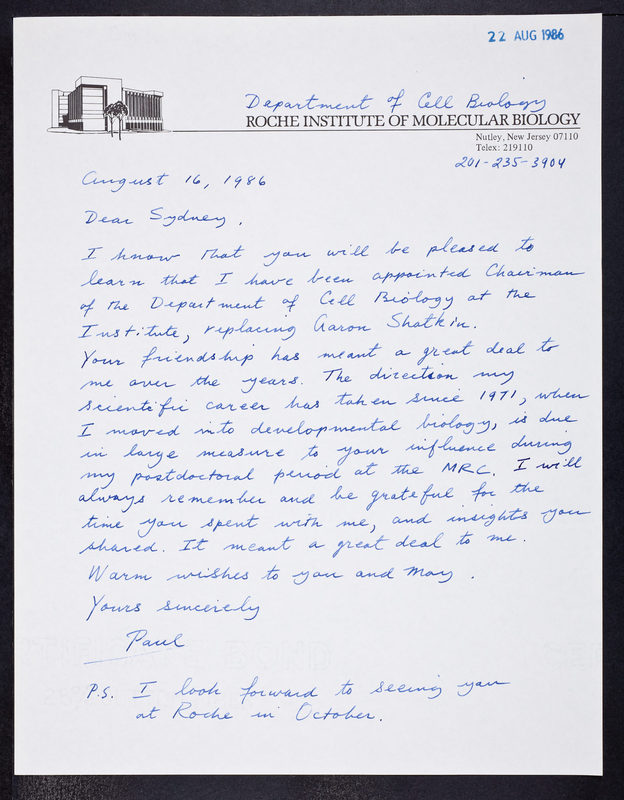 22 AUG 1986
Department of Cell Biology
ROCHE INSTITUTE OF MOLECULAR BIOLOGY
Nutley, New Jersey 07110
Telex: 219110
201-235-3904
August 16, 1986
Dear Sydney,
I know that you will be pleased to
learn that I have been appointed Chairman
of the Department of Cell Biology at the
Institute, replacing Aaron Shatkin.
Your friendship has meant a great deal to
me over the years. The direction my
scientific career has taken since 1971, when
I moved into developmental biology, is due
in large measure to your influence during
my postdoctoral period at the MRC. I will
always remember and be grateful for the
time you spent with me, and insights you
shared. It meant a great deal to me.
Warm wishes to you and May.
Yours sincerely
Paul
P.S. I look forward to seeing you
at Roche in October.